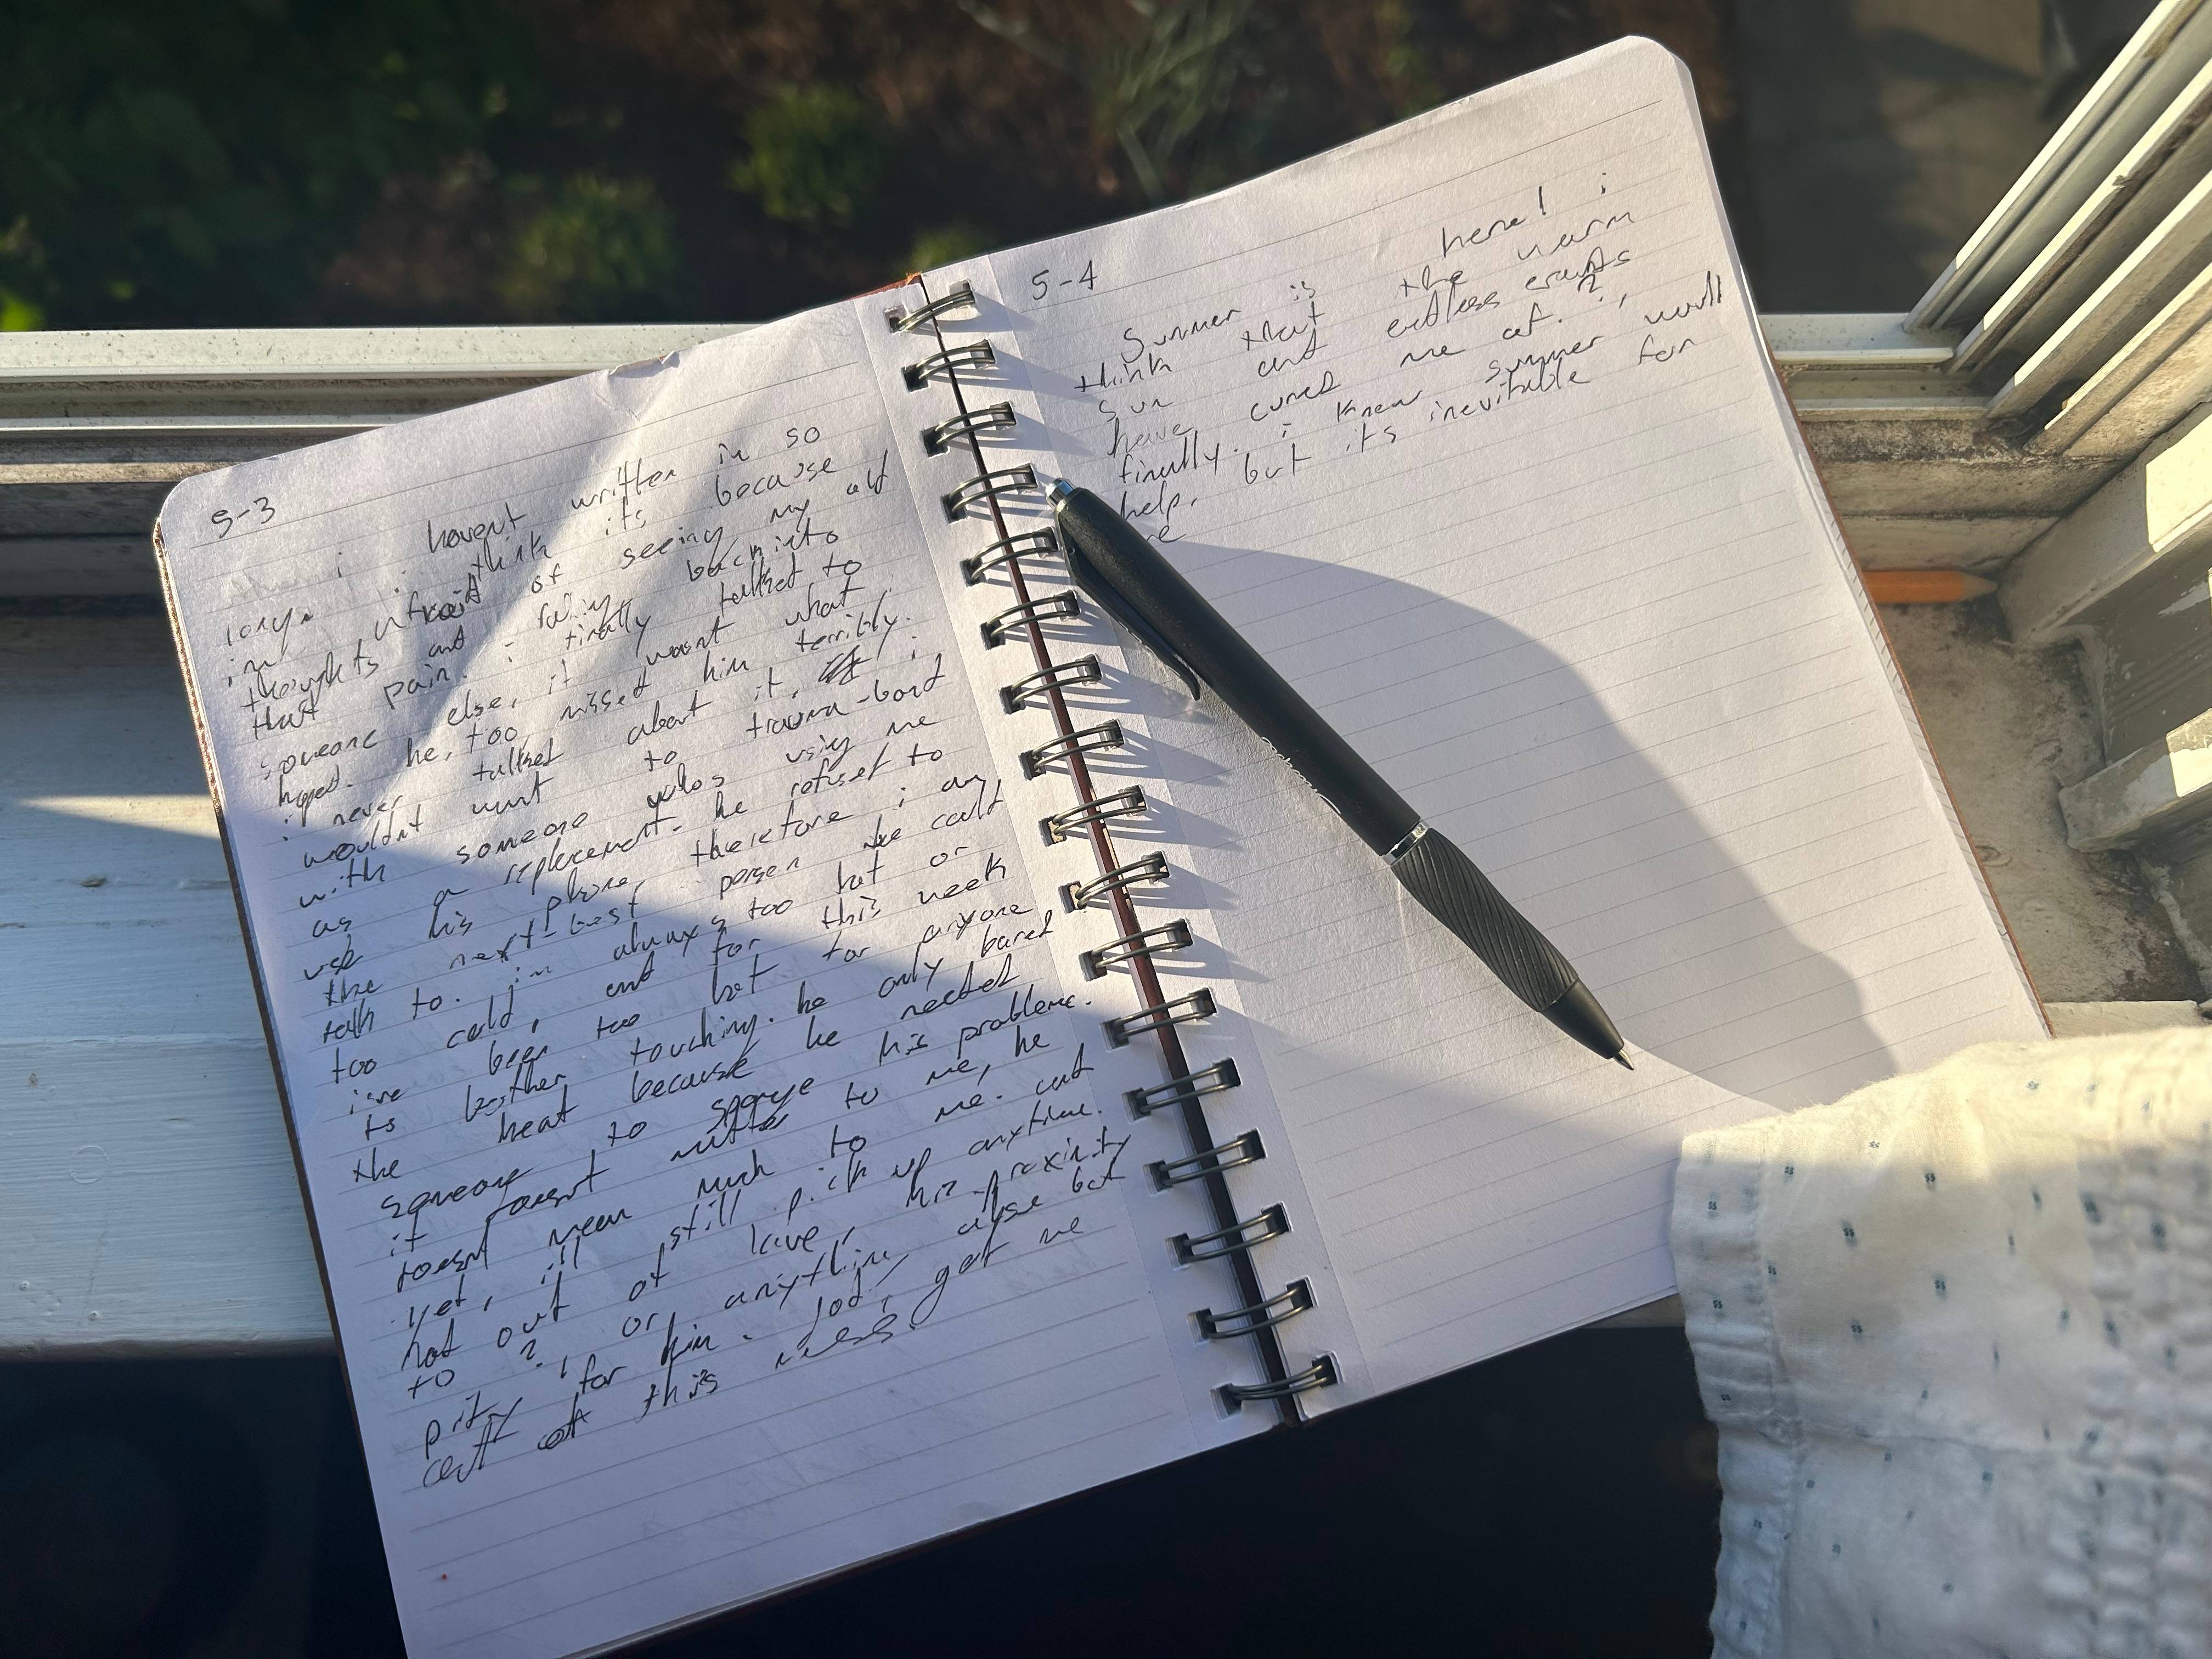 5-3
i havent written in so
long. i think its because
im afraid of seeing my old
thoughts and falling back into
that pain. i finally talked to
someone else, it wasnt what i
hoped. he, too, missed him terribly.
i never talked about it, i
wouldnt want to trauma-bond
with someone whos using me
as a replacement. he refused to
use his phone, therefore i am
the next-best person he could
talk to. im always too hot or
too cold, and for this week
ive been too hot for anyone
to bother touching. he only bared
the heat because he needed
someone to sponge his problems.
it doesnt matter to me, he
doesnt mean much to me. and
yet, ill still pick up anytime.
not out of love, his proximity
to ?, or anything else but
pity for him. god, get me
out of this mess.
5-4
Summer is here! i
think that the warm
sun and endless events
have cured me of ?,
finally. i knew summer would
help, but its inevitable for
me